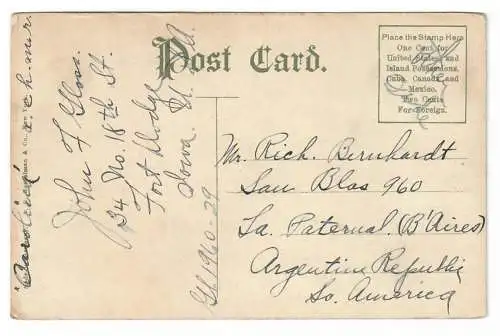 Post Card.
Place the Stamp Here
One Cent for
United States and
Island Possessions,
Cuba, Canada and
Mexico.
Two Cents
For Foreign.
John F Gloss.
34 No. 18th St.
Fort Dodge
Iowa. U. S. A.
Mr. Rich. Bernhardt
San Blas 960
La Paternal (B'Aires)
Argentine Republic
So. America